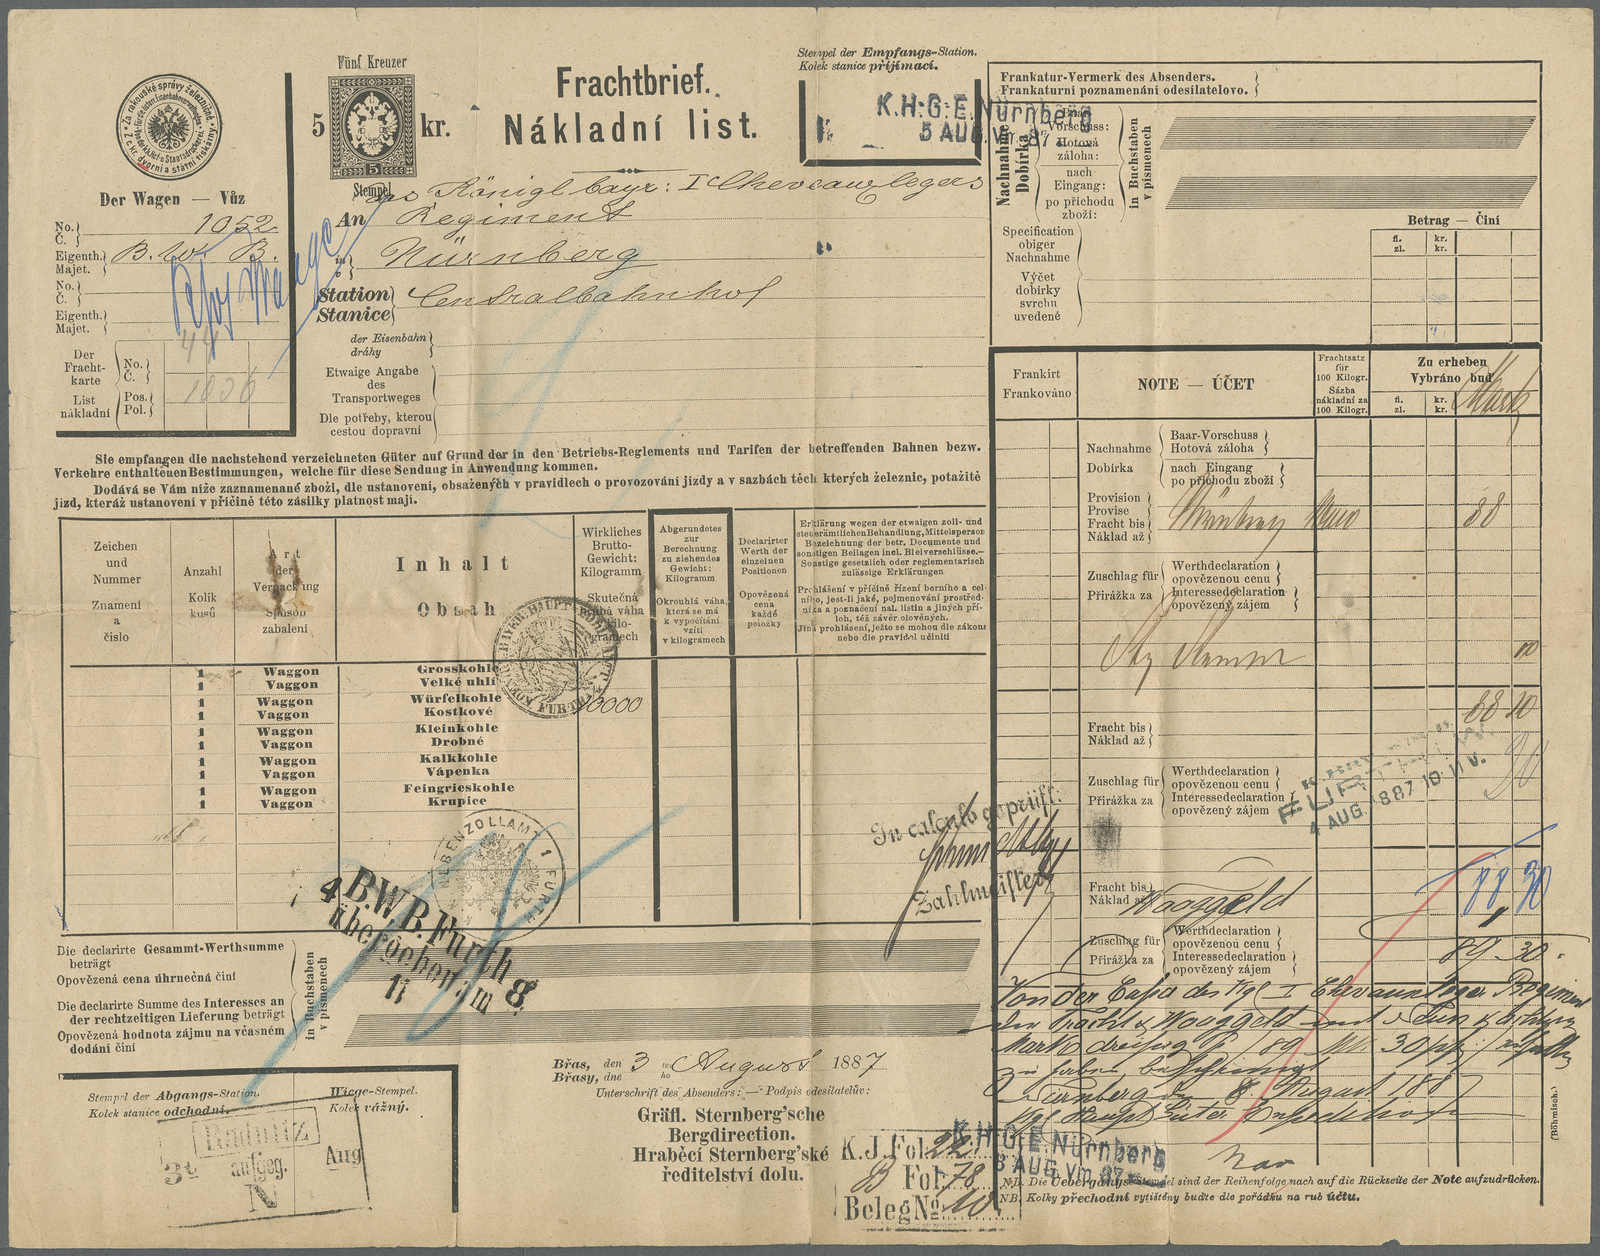 Fünf Kreuzer
5 kr.
Frachtbrief.
Nákladní list.
Stempel der Empfangs-Station.
Kolek stanice přijímací.
K.H.G.E. Nürnberg
5 AUG. Vm. 87
Der Wagen — Vůz
No. Č. 1052
Eigenth. Majet. B. W. B.
No. Č.
Eigenth. Majet.
Der Fracht-karte
List nákladní
No. Č.
Pos. Pol.
1006
Stempel
Königl bayr: I Chevauxlegers
An Regiment
in Nürnberg
Station Stanice Centralbahnhof
der Eisenbahn
dráhy
Etwaige Angabe
des
Transportweges
Dle potřeby, kterou
cestou dopravní
Sie empfangen die nachstehend verzeichneten Güter auf Grund der in den Betriebs-Reglements und Tarifen der betreffenden Bahnen bezw.
Verkehre enthaltenen Bestimmungen, welche für diese Sendung in Anwendung kommen.
Dodává se Vám níže zaznamenané zboží, dle ustanovení, obsažených v pravidlech o provozování jízdy a v sazbách těch kterých železnic, potažitě
jízd, kteráž ustanovení v příčině této zásilky platnost mají.
Zeichen
und
Nummer
Znamení
a
číslo
Anzahl
Kolik
kusů
Art
der
Verpackung
Spůsob
zabalení
Inhalt
Obsah
Wirkliches
Brutto-
Gewicht:
Kilogramm
Skutečná
hrubá váha
kilo-
gramech
Abgerundetes
zur
Berechnung
zu ziehendes
Gewicht:
Kilogramm
Okrouhlá váha,
která se má
k vypočítání
vzíti
v kilogramech
Declarirter
Werth der
einzelnen
Positionen
Opovězená
cena
každé
položky
Erklärung wegen der etwaigen zoll- und
steuerämtlichen Behandlung, Mittelsperson
Bezeichnung der betr. Documente und
sonstigen Beilagen incl. Bleiverschlüsse.—
Sonstige gesetzlich oder reglementarisch
zulässige Erklärungen
Prohlášení v příčině řízení berního a cel-
ního, jest-li jaké, pojmenování prostřed-
níka a poznačení nal. listin a jiných pří-
loh, též závěr olověných.
Jiná prohlášení, ježto se mohou dle zákona
nebo dle pravidel učiniti
1 Waggon Grosskohle
1 Vaggon Velké uhlí
1 Waggon Würfelkohle
1 Vaggon Kostkové
10000
1 Waggon Kleinkohle
1 Vaggon Drobné
1 Waggon Kalkkohle
1 Vaggon Vápenka
1 Waggon Feingrieskohle
1 Vaggon Krupice
NEBENZOLLAMT I FURTH
B.W.B. Furth
übergeben am
4 8 11
In calculo geprüft:
Zahlmeister
Die declarirte Gesammt-Werthsumme
beträgt
Opovězená cena úhrnečná činí
Die declarirte Summe des Interesses an
der rechtzeitigen Lieferung beträgt
Opovězená hodnota zájmu na včasném
dodání činí
in Buchstaben
v písmenech
Břas, den 3 ten August 1887
Břasy, dne ho
Unterschrift des Absenders: — Podpis odesílatelův:
Gräfl. Sternberg'sche
Bergdirection.
Hraběcí Sternberg'ské
ředitelství dolů.
Stempel der Abgangs-Station.
Kolek stanice odchodní.
Wiege-Stempel.
Kolek vážný.
Radnitz
aufgeg.
Aug
N
K.J. Fol. 22
B Fol. 78
Beleg No
K.H.G.E. Nürnberg
8 AUG. Vm. 87
Frankatur-Vermerk des Absenders.
Frankaturní poznamenání odesílatelovo.
Nachnahme
Dobírka
Baar-
Vorschuss:
Hotová
záloha:
nach
Eingang:
po příchodu
zboží:
in Buchstaben
v písmenech
Betrag — Činí
fl. zl. kr. kr.
Specification
obiger
Nachnahme
Výčet
dobírky
svrchu
uvedené
Frankirt
Frankováno
NOTE — ÚČET
Frachtsatz
für
100 Kilogr.
Sázba
nákladní za
100 Kilogr.
Zu erheben
Vybráno bud
fl. zl. kr. kr.
Mark
Nachnahme
Dobírka
Baar-Vorschuss
Hotová záloha
nach Eingang
po příchodu zboží
Provision
Provise
Fracht bis
Náklad až
Nürnberg
88
Zuschlag für
Přirážka za
Werthdeclaration
opovězenou cenu
Interessedeclaration
opovězený zájem
10
88 10
Fracht bis
Náklad až
Zuschlag für
Přirážka za
Werthdeclaration
opovězenou cenu
Interessedeclaration
opovězený zájem
20
FURTH
4 AUG. 1887 10-11 V.
Fracht bis
Náklad až
Waaggeld
88 30
1
Zuschlag für
Přirážka za
Werthdeclaration
opovězenou cenu
Interessedeclaration
opovězený zájem
89 30
Von der Cassa des Kgl I Chevauxleger Regiment
Mark dreißig
89 Mk 30 pf
zu haben bescheinigt
Nürnberg den 8. August 1887
(Böhmisch.)
NB. Die Uebergangs-Stempel sind der Reihenfolge nach auf die Rückseite der Note aufzudrücken.
NB. Kolky přechodní vytištěny buďte dle pořádku na rub účtu.